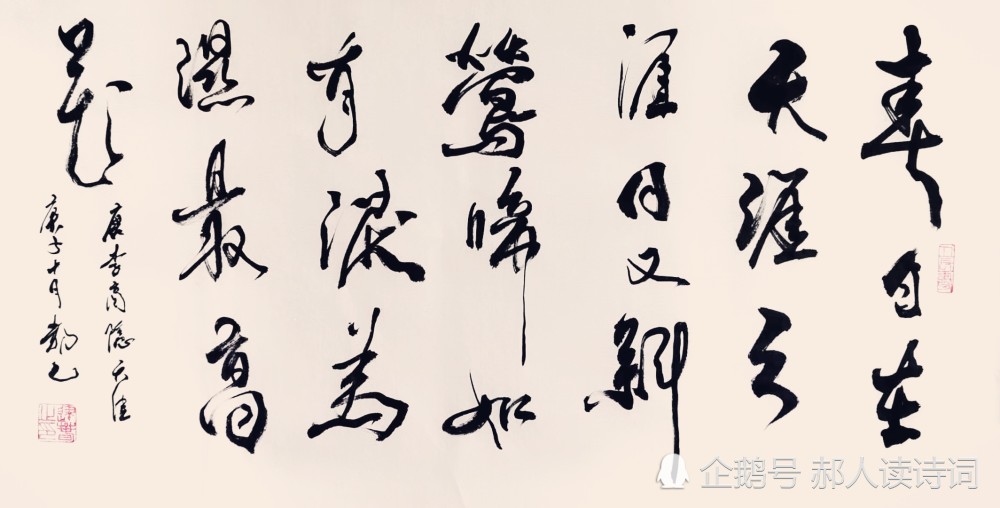 春日在
天涯天
涯日又斜
鶯啼如
有淚為
濕最高
花
唐李商隱天涯
庚子十月
企鹅号 郝人读诗词